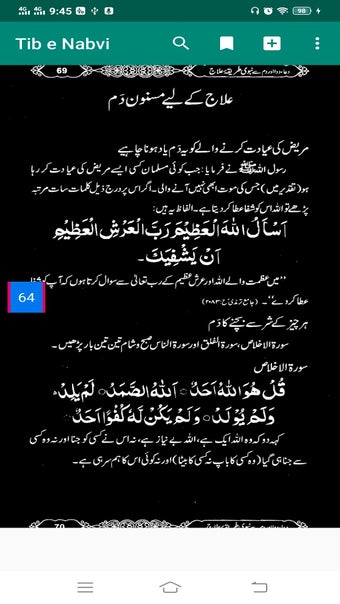 4G 4G 9:45 98
Tib e Nabvi
69 دعاء، دوا اور دم سے نبوی طریقۂ علاج
علاج کے لیے مسنون دَم
مریض کی عیادت کرنے والے کو یہ دَم یاد ہونا چاہیے
رسول اللہ ﷺ نے فرمایا: جب کوئی مسلمان کسی ایسے مریض کی عیادت کر رہا
ہو (تقدیر میں) جس کی موت ابھی نہیں آنے والی۔ اگر اس پر درج ذیل کلمات سات مرتبہ
پڑھے تو اللہ اس کو شفا عطا کر دیتا ہے۔ الفاظ یہ ہیں:
اَسْاَلُ اللّٰهَ الْعَظِيْمَ رَبَّ الْعَرْشِ الْعَظِيْمِ
اَنْ يَشْفِيَكَ۔
”میں عظمت والے اللہ اور عرش عظیم کے رب تعالیٰ سے سوال کرتا ہوں کہ آپ کو شفا
عطا کر دے“۔ (جامع ترمذی ح: ۲۰۸۳)
64
ہر چیز کے شر سے بچنے کا دَم
سورۃ الاخلاص، سورۃ الفلق اور سورۃ الناس صبح و شام تین تین بار پڑھیں۔
سورۃ الاخلاص
قُلْ هُوَ اللّٰهُ اَحَدٌ ۝ اَللّٰهُ الصَّمَدُ ۝ لَمْ يَلِدْ ۙ
وَلَمْ يُوْلَدْ ۝ وَلَمْ يَكُنْ لَّهٗ كُفُوًا اَحَدٌ ۝
کہہ دو کہ وہ اللہ ایک ہے، اللہ بے نیاز ہے، نہ اس نے کسی کو جنا اور نہ وہ کسی
سے جنا ہی گیا (وہ کسی کا باپ نہ کسی کا بیٹا) اور نہ کوئی اس کا ہم سر ہی ہے۔
70 دعاء، دوا اور دم سے نبوی طریقۂ علاج